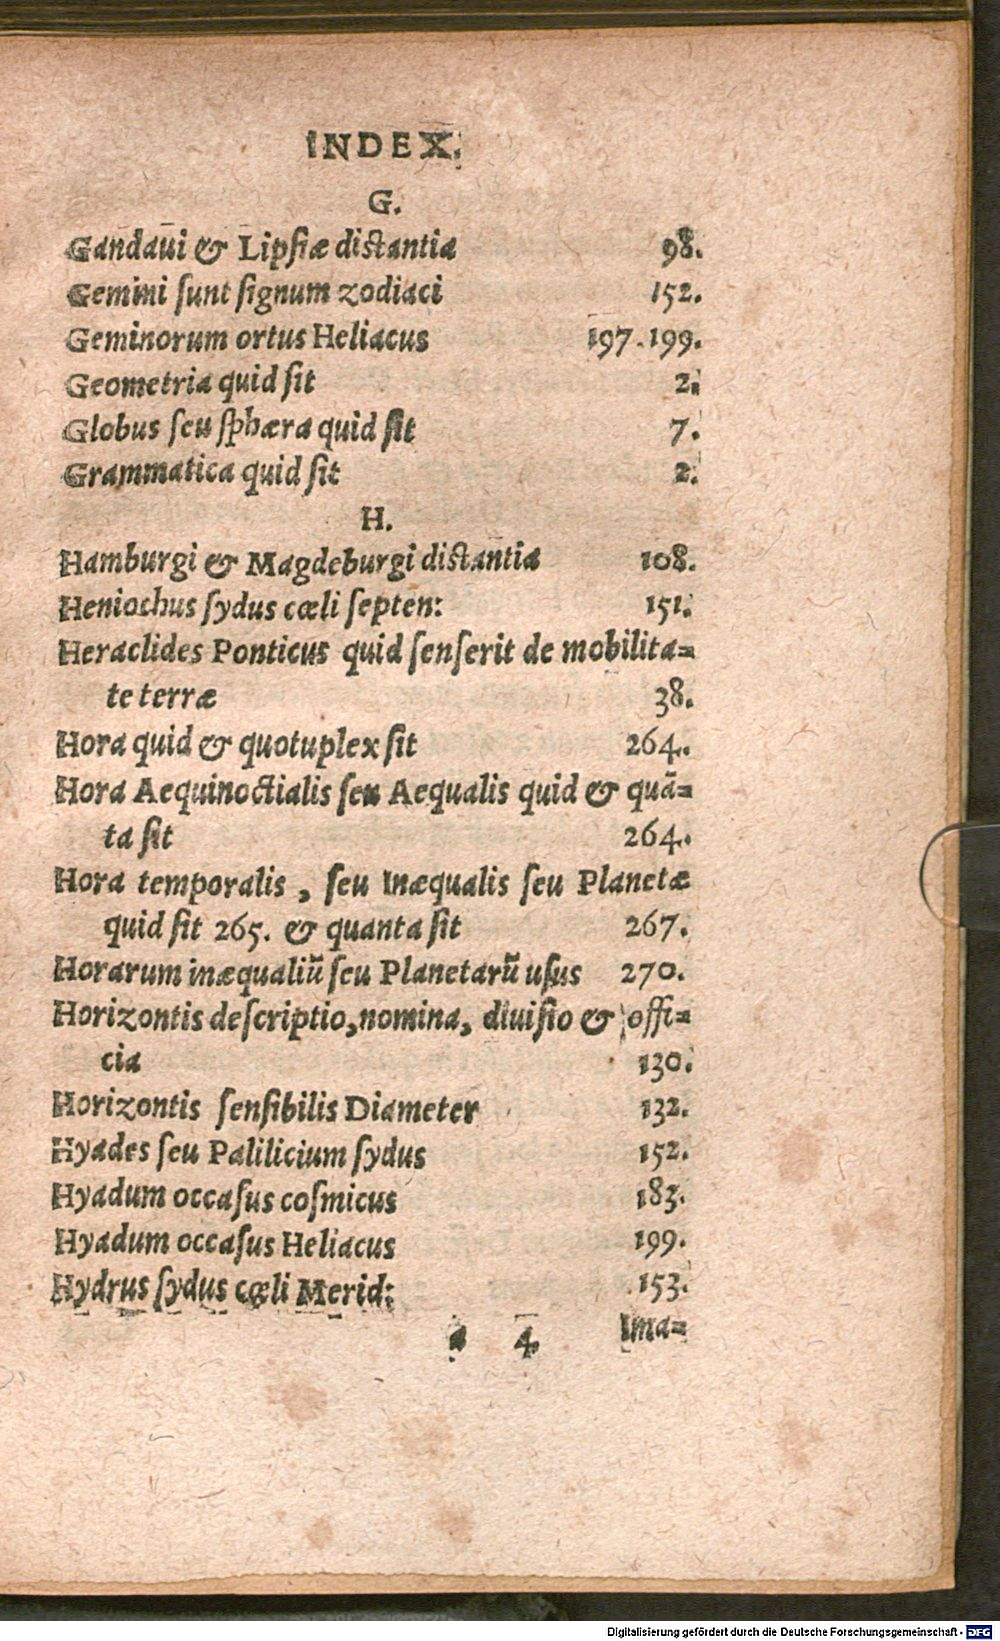 INDEX.
G.
Gandaui & Lipſiæ diſtantia 98.
Gemini ſunt ſignum zodiaci 152.
Geminorum ortus Heliacus 197.199.
Geometria quid ſit 2.
Globus ſeu ſphæra quid ſit 7.
Grammatica quid ſit 2.
H.
Hamburgi & Magdeburgi diſtantia 108.
Heniochus ſydus cœli ſepten: 151.
Heraclides Ponticus quid ſenſerit de mobilita=
te terræ 38.
Hora quid & quotuplex ſit 264.
Hora Aequinoctialis ſeu Aequalis quid & quā=
ta ſit 264.
Hora temporalis, ſeu Inæqualis ſeu Planetæ
quid ſit 265. & quanta ſit 267.
Horarum inæqualiū ſeu Planetarū uſus 270.
Horizontis deſcriptio, nomina, diuiſio & offi=
cia 130.
Horizontis ſenſibilis Diameter 132.
Hyades ſeu Palilicium ſydus 152.
Hyadum occaſus coſmicus 183.
Hyadum occaſus Heliacus 199.
Hydrus ſydus cœli Merid: 153.
a 4 Ima=
Digitalisierung gefördert durch die Deutsche Forschungsgemeinschaft - DFG